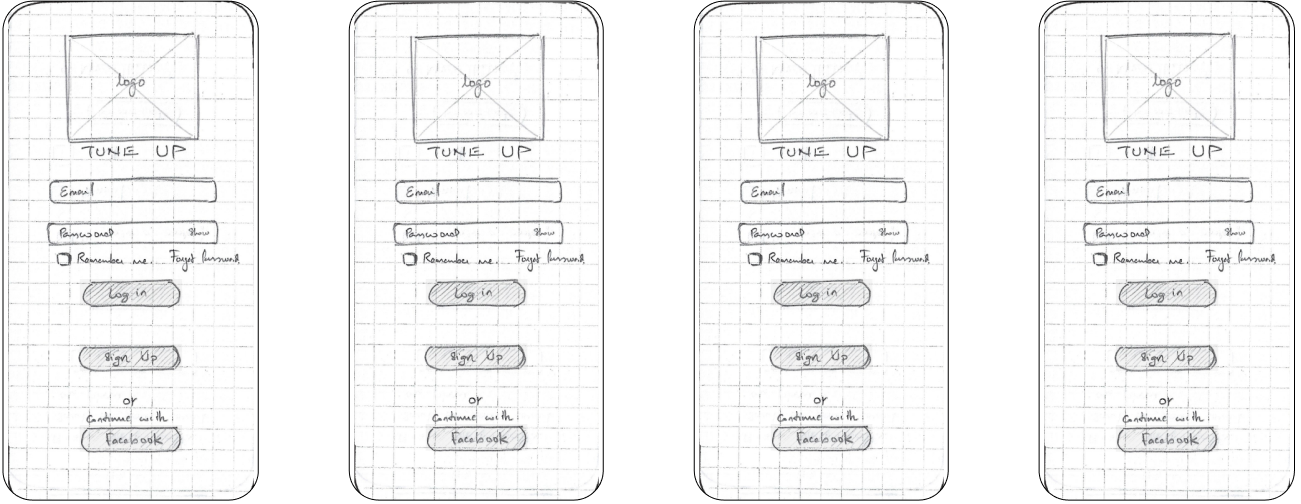 logo
TUNE UP
Email
Password Show
Remember me. Forget Password
Log in
Sign Up
or
Continue with
Facebook
logo
TUNE UP
Email
Password Show
Remember me. Forget Password
Log in
Sign Up
or
Continue with
Facebook
logo
TUNE UP
Email
Password Show
Remember me. Forget Password
Log in
Sign Up
or
Continue with
Facebook
logo
TUNE UP
Email
Password Show
Remember me. Forget Password
Log in
Sign Up
or
Continue with
Facebook